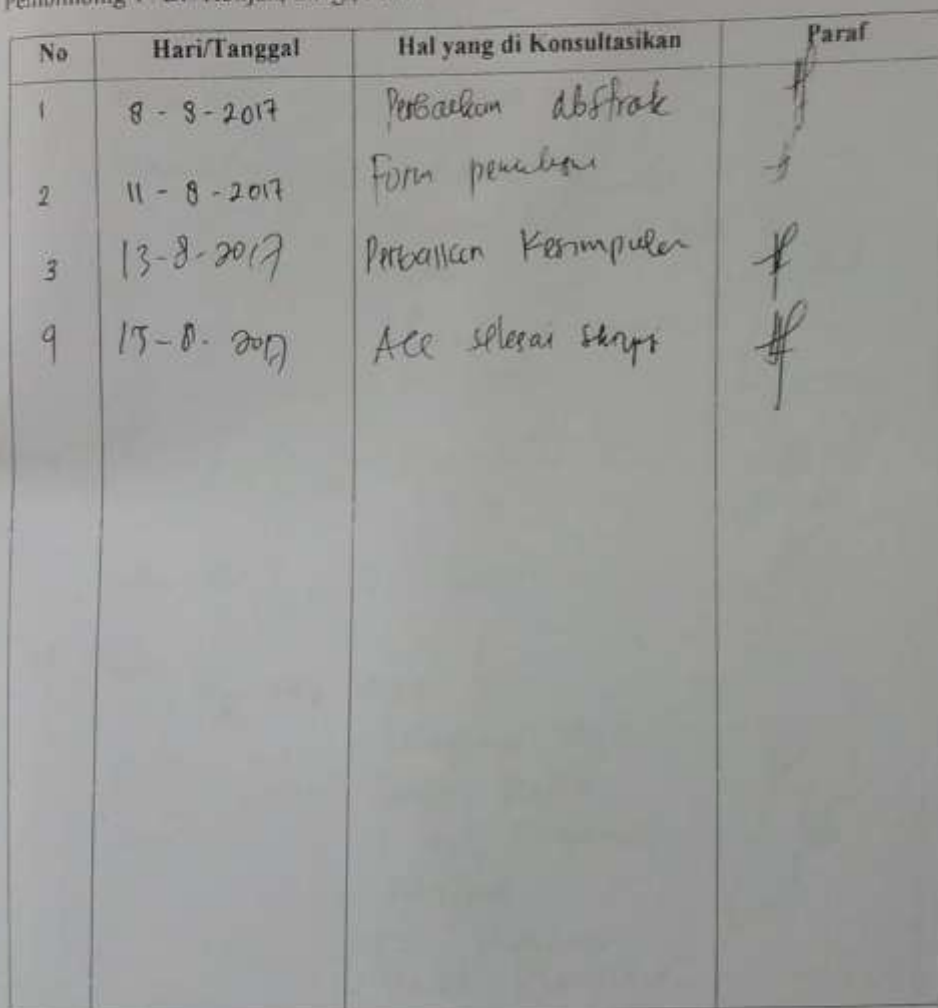 No Hari/Tanggal Hal yang di Konsultasikan Paraf
1 8 - 8 - 2017 Perbaikan abstrak
2 11 - 8 - 2017 Form penulisan
3 13-8-2017 Perbaikan Kesimpulan
4 15-8-2017 Acc selesai skripsi